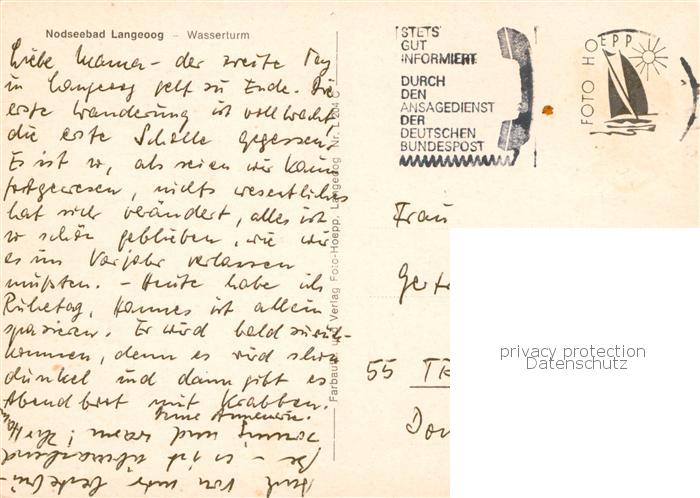 Nordseebad Langeoog – Wasserturm
Liebe Mama – der zweite Tag
in Langeoog geht zu Ende. Die
erste Wanderung ist vollbracht,
die erste Scholle gegessen!
Es ist so, als seien wir kaum
fortgewesen, nichts wesentliches
hat sich verändert, alles ist
so schön geblieben, wie wir
es im Vorjahr verlassen
mußten. – Heute habe ich
Ruhetag, Hannes ist allein
spazieren. Er wird bald zurück-
kommen, denn es wird schon
dunkel und dann gibt es
Abendbrot mit Krabben.
Deine Annemarie.
Farbaufn. und Verlag Foto-Hoepp, Langeoog Nr. L 204 C
STETS
GUT
INFORMIERT
DURCH
DEN
ANSAGEDIENST
DER
DEUTSCHEN
BUNDESPOST
FOTO HOEPP
Frau
55 TR
privacy protection
Datenschutz